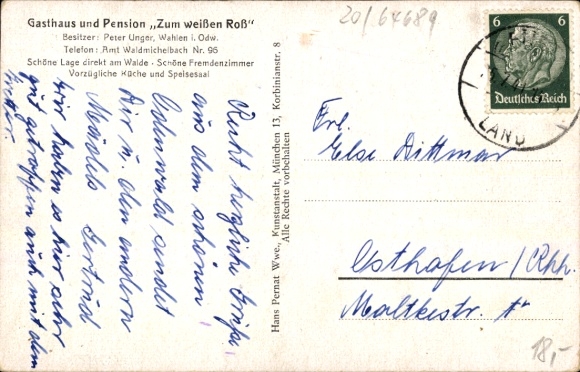 Gasthaus und Pension „Zum weißen Roß"
Besitzer: Peter Unger, Wahlen i. Odw.
Telefon: Amt Waldmichelbach Nr. 96
Schöne Lage direkt am Walde · Schöne Fremdenzimmer
Vorzügliche Küche und Speisesaal
Recht herzliche Grüße
aus dem schönen
Odenwald sendet
Dir u. den andern
Mädels Gertrud
Wir haben es hier sehr
gut getroffen auch mit dem
Wetter.
Hans Pernat Wwe., Kunstanstalt, München 13, Korbinianstr. 8
Alle Rechte vorbehalten
20/64689
6 6
Deutsches Reich
LAND
Frl.
Else Dittmar
Osthofen / Rhh.
Moltkestr.
18,-